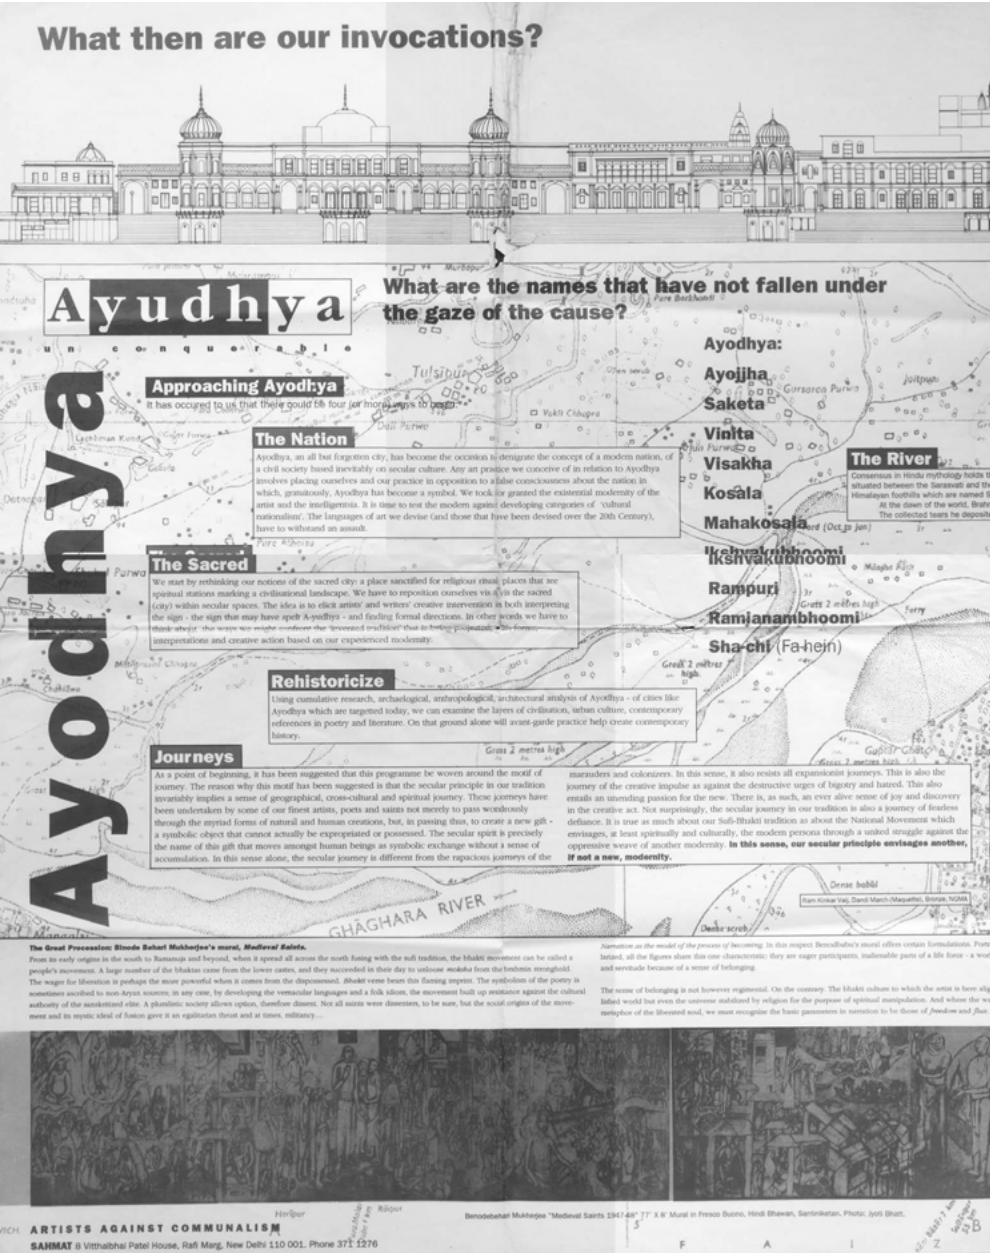 What then are our invocations?
Ayudhya
unconquerable
Ayodhya
What are the names that have not fallen under
the gaze of the cause?
Ayodhya:
Ayojjha
Saketa
Vinita
Visakha
Kosala
Mahakosala
Ikshvakubhoomi
Ikshvakubhoomi
Rampuri
Ramjanambhoomi
Sha-chi (Fa-hein)
Approaching Ayodhya
It has occured to us that there could be four (or more) ways to begin:
The Nation
Ayodhya, an all but forgotten city, has become the occasion to denigrate the concept of a modern nation, of
a civil society based inevitably on secular culture. Any art practice we conceive of in relation to Ayodhya
involves placing ourselves and our practice in opposition to a false consciousness about the nation in
which, gratuitously, Ayodhya has become a symbol. We took for granted the existential modernity of the
artist and the intelligentsia. It is time to test the modern against developing categories of 'cultural
nationalism'. The languages of art we devise (and those that have been devised over the 20th Century),
have to withstand an assault.
The River
Consensus in Hindu mythology holds
situated between the Sarasvati and the
Himalayan foothills which are named
At the dawn of the world, Brahm
The collected tears he deposite
The Sacred
The Sacred
We start by rethinking our notions of the sacred city: a place sanctified for religious ritual places that are
spiritual stations marking a civilisational landscape. We have to reposition ourselves vis a vis the sacred
(city) within secular spaces. The idea is to elicit artists' and writers' creative intervention in both interpreting
the sign - the sign that may have spelt A-yudhya - and finding formal directions. In other words we have to
think about the ways we might confront the 'invented tradition' that is being projected, with forms,
interpretations and creative action based on our experienced modernity.
Rehistoricize
Using cumulative research, archaelogical, anthropological, architectural analysis of Ayodhya - of cities like
Ayodhya which are targetted today, we can examine the layers of civilisation, urban culture, contemporary
references in poetry and literature. On that ground alone will avant-garde practice help create contemporary
history.
Journeys
As a point of beginning, it has been suggested that this programme be woven around the motif of
journey. The reason why this motif has been suggested is that the secular principle in our tradition
invariably implies a sense of geographical, cross-cultural and spiritual journey. These journeys have
been undertaken by some of our finest artists, poets and saints not merely to pass wondrously
through the myriad forms of natural and human creations, but, in passing thus, to create a new gift -
a symbolic object that cannot actually be expropriated or possessed. The secular spirit is precisely
the name of this gift that moves amongst human beings as symbolic exchange without a sense of
accumulation. In this sense alone, the secular journey is different from the rapacious journeys of the
marauders and colonizers. In this sense, it also resists all expansionist journeys. This is also the
journey of the creative impulse as against the destructive urges of bigotry and hatred. This also
entails an unending passion for the new. There is, as such, an ever alive sense of joy and discovery
in the creative act. Not surprisingly, the secular journey in our tradition is also a journey of fearless
defiance. It is true as much about our Sufi-Bhakti tradition as about the National Movement which
envisages, at least spiritually and culturally, the modern persona through a united struggle against the
oppressive weave of another modernity. In this sense, our secular principle envisages another,
if not a new, modernity.
Tulsipur
Dali Purwa
Vakli Chhapra
Open scrub
Gursaran Purwa
Joitpur
Pure Barkhandi
Lachhman Kund
Ford (Oct to Jun)
Grass 2 metres high
Ferry
Grass 2 metres
high
Grass 2 metres high
Guptar Ghat
Grass 2 metres high
Dense babul
Dense scrub
GHĀGHARA RIVER
Ram Kinkar Vaij, Dandi March (Maquette), Bronze, NGMA
The Great Procession: Binode Behari Mukherjee's mural, Medieval Saints.
From its early origins in the south to Ramanuja and beyond, when it spread all across the north fusing with the sufi tradition, the bhakti movement can be called a
people's movement. A large number of the bhaktas came from the lower castes, and they succeeded in their day to unloose moksha from the brahmin stronghold.
The wager for liberation is perhaps the more powerful when it comes from the dispossessed. Bhakti verse bears this flaming imprint. The symbolism of the poetry is
sometimes ascribed to non-Aryan sources; in any case, by developing the vernacular languages and a folk idiom, the movement built up resistance against the cultural
authority of the sanskritized elite. A pluralistic society allows option, therefore dissent. Not all saints were dissenters, to be sure, but the social origins of the move-
ment and its mystic ideal of fusion gave it an egalitarian thrust and at times, militancy...
Narration as the model of the process of becoming. In this respect Benodbabu's mural offers certain formulations. Portr
larized, all the figures share this one characteristic: they are eager participants, inalienable parts of a life force - a wor
and servitude because of a sense of belonging.
The sense of belonging is not however regimental. On the contrary. The bhakti culture to which the artist is here alig
lished world but even the universe stabilized by religion for the purpose of spiritual manipulation. And where the wo
metaphor of the liberated soul, we must recognise the basic parameters in narration to be those of freedom and flux.
Benodebehari Mukherjee "Medieval Saints 1947-48" 77' X 8' Mural in Fresco Buono, Hindi Bhawan, Santiniketan. Photo: Jyoti Bhatt.
Haripur
Raipur
ARTISTS AGAINST COMMUNALISM
SAHMAT 8 Vitthalbhai Patel House, Rafi Marg, New Delhi 110 001. Phone 371 1276
F A I Z
B